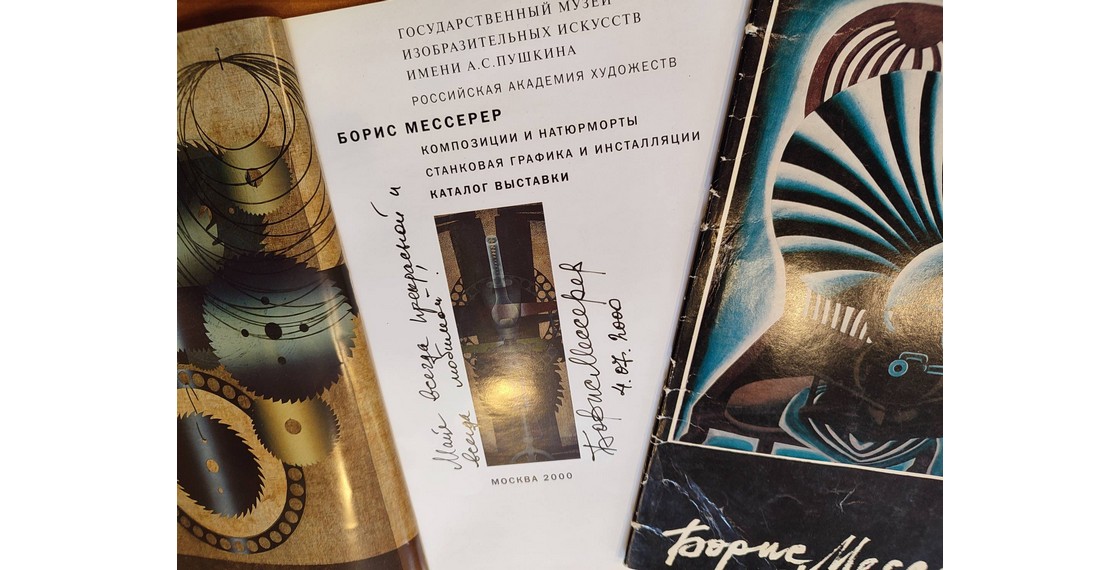 ГОСУДАРСТВЕННЫЙ МУЗЕЙ
ИЗОБРАЗИТЕЛЬНЫХ ИСКУССТВ
ИМЕНИ А.С.ПУШКИНА
РОССИЙСКАЯ АКАДЕМИЯ ХУДОЖЕСТВ
БОРИС МЕССЕРЕР
КОМПОЗИЦИИ И НАТЮРМОРТЫ
СТАНКОВАЯ ГРАФИКА И ИНСТАЛЛЯЦИИ
КАТАЛОГ ВЫСТАВКИ
Майе всегда прекрасной и
всегда любимой –!
Борис Мессерер
4.07.2000
МОСКВА 2000
Борис Месс